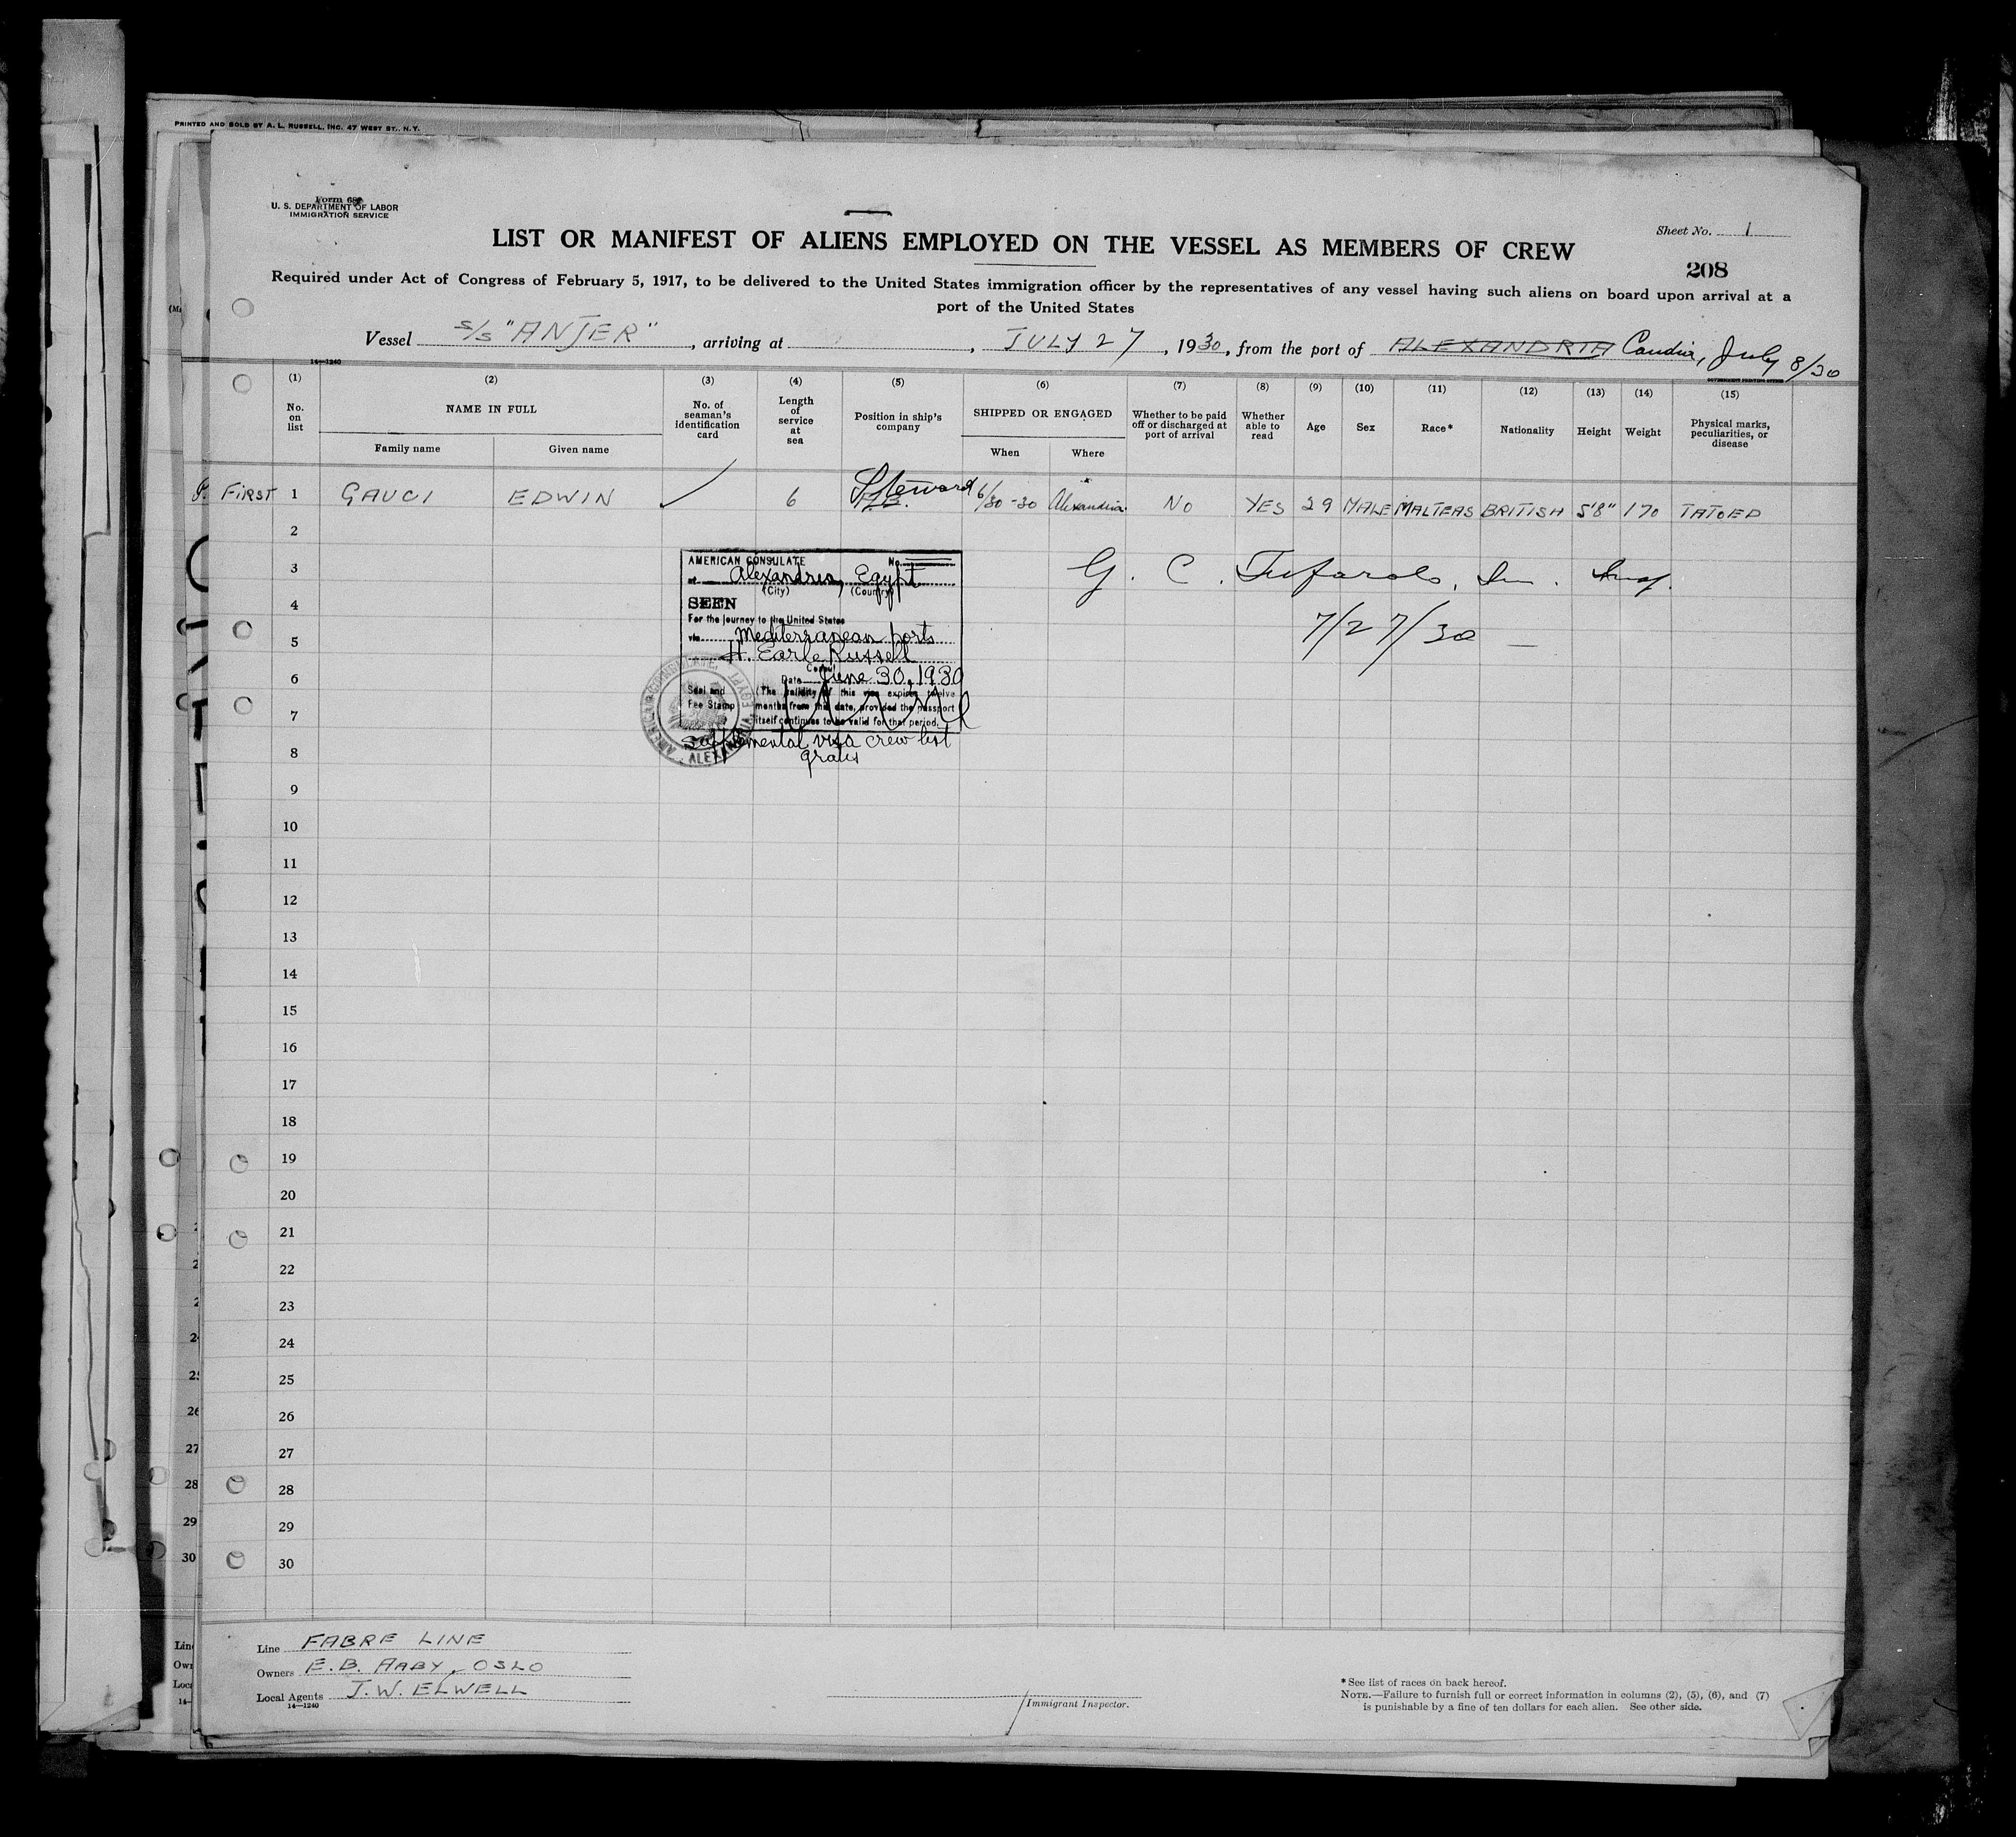 PRINTED AND SOLD BY A. L. RUSSELL, INC. 47 WEST ST., N. Y.
Form 680
U. S. DEPARTMENT OF LABOR
IMMIGRATION SERVICE
Sheet No. 1
LIST OR MANIFEST OF ALIENS EMPLOYED ON THE VESSEL AS MEMBERS OF CREW
208
Required under Act of Congress of February 5, 1917, to be delivered to the United States immigration officer by the representatives of any vessel having such aliens on board upon arrival at a
port of the United States
Vessel S/S "ANJER", arriving at , JULY 27, 1930, from the port of ALEXANDRIA Candia, July 8/30
14—1240
GOVERNMENT PRINTING OFFICE
(1) (2) (3) (4) (5) (6) (7) (8) (9) (10) (11) (12) (13) (14) (15)
No. on list
NAME IN FULL
Family name
Given name
No. of seaman's identification card
Length of service at sea
Position in ship's company
SHIPPED OR ENGAGED
When
Where
Whether to be paid off or discharged at port of arrival
Whether able to read
Age
Sex
Race*
Nationality
Height
Weight
Physical marks, peculiarities, or disease
FIRST 1 GAUCI EDWIN 6 Steward 6/30-30 Alexandria NO YES 29 MALE MALTEAS BRITISH 5'8" 170 TATOED
2
3
4
5
6
7
8
9
10
11
12
13
14
15
16
17
18
19
20
21
22
23
24
25
26
27
28
29
30
AMERICAN CONSULATE No.
at Alexandria, Egypt
(City) (Country)
SEEN
For the journey to the United States
via Mediterranean ports
H. Earle Russell
Consul
Date June 30, 1930
Seal and Fee Stamp
(The validity of this visa expires twelve
months from this date, provided the passport
itself continues to be valid for that period.
Supplemental visa crew list
gratis
G. C. Tufarolo, Im. Insp.
7/27/30
Line FABRE LINE
Owners E. B. AABY, OSLO
Local Agents J. W. ELWELL
14—1240
Immigrant Inspector.
* See list of races on back hereof.
NOTE.—Failure to furnish full or correct information in columns (2), (5), (6), and (7)
is punishable by a fine of ten dollars for each alien. See other side.